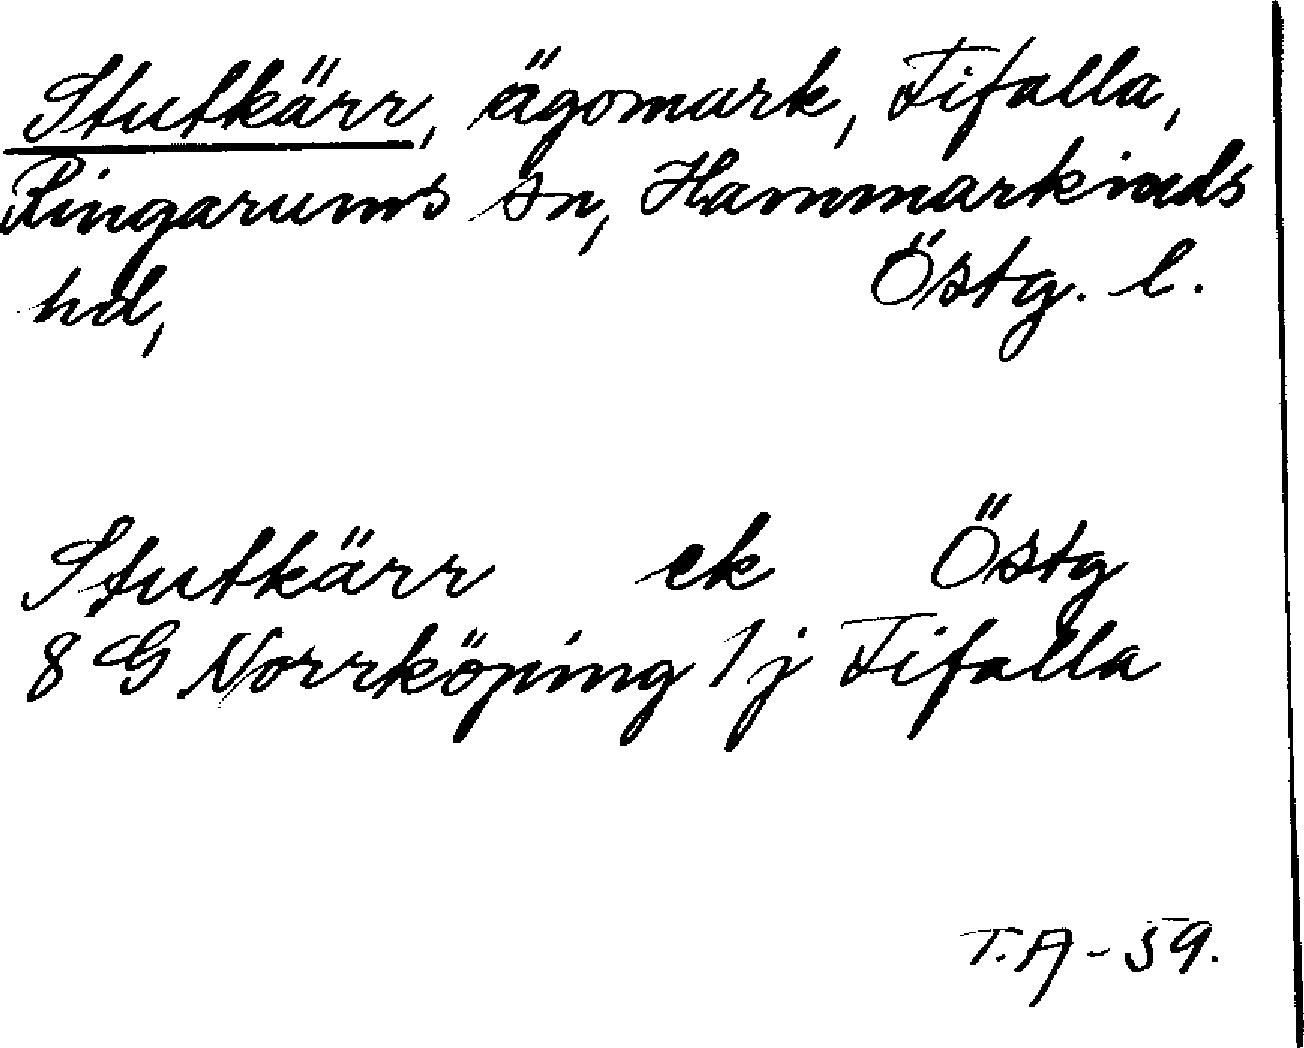 Stutkärr, ägomark, Fifalla,
Ringarums sn, Hammarkinds
hd, Östg. l.
Stutkärr ek Östg
8 G Norrköping 1 j Fifalla
T.A - 59.